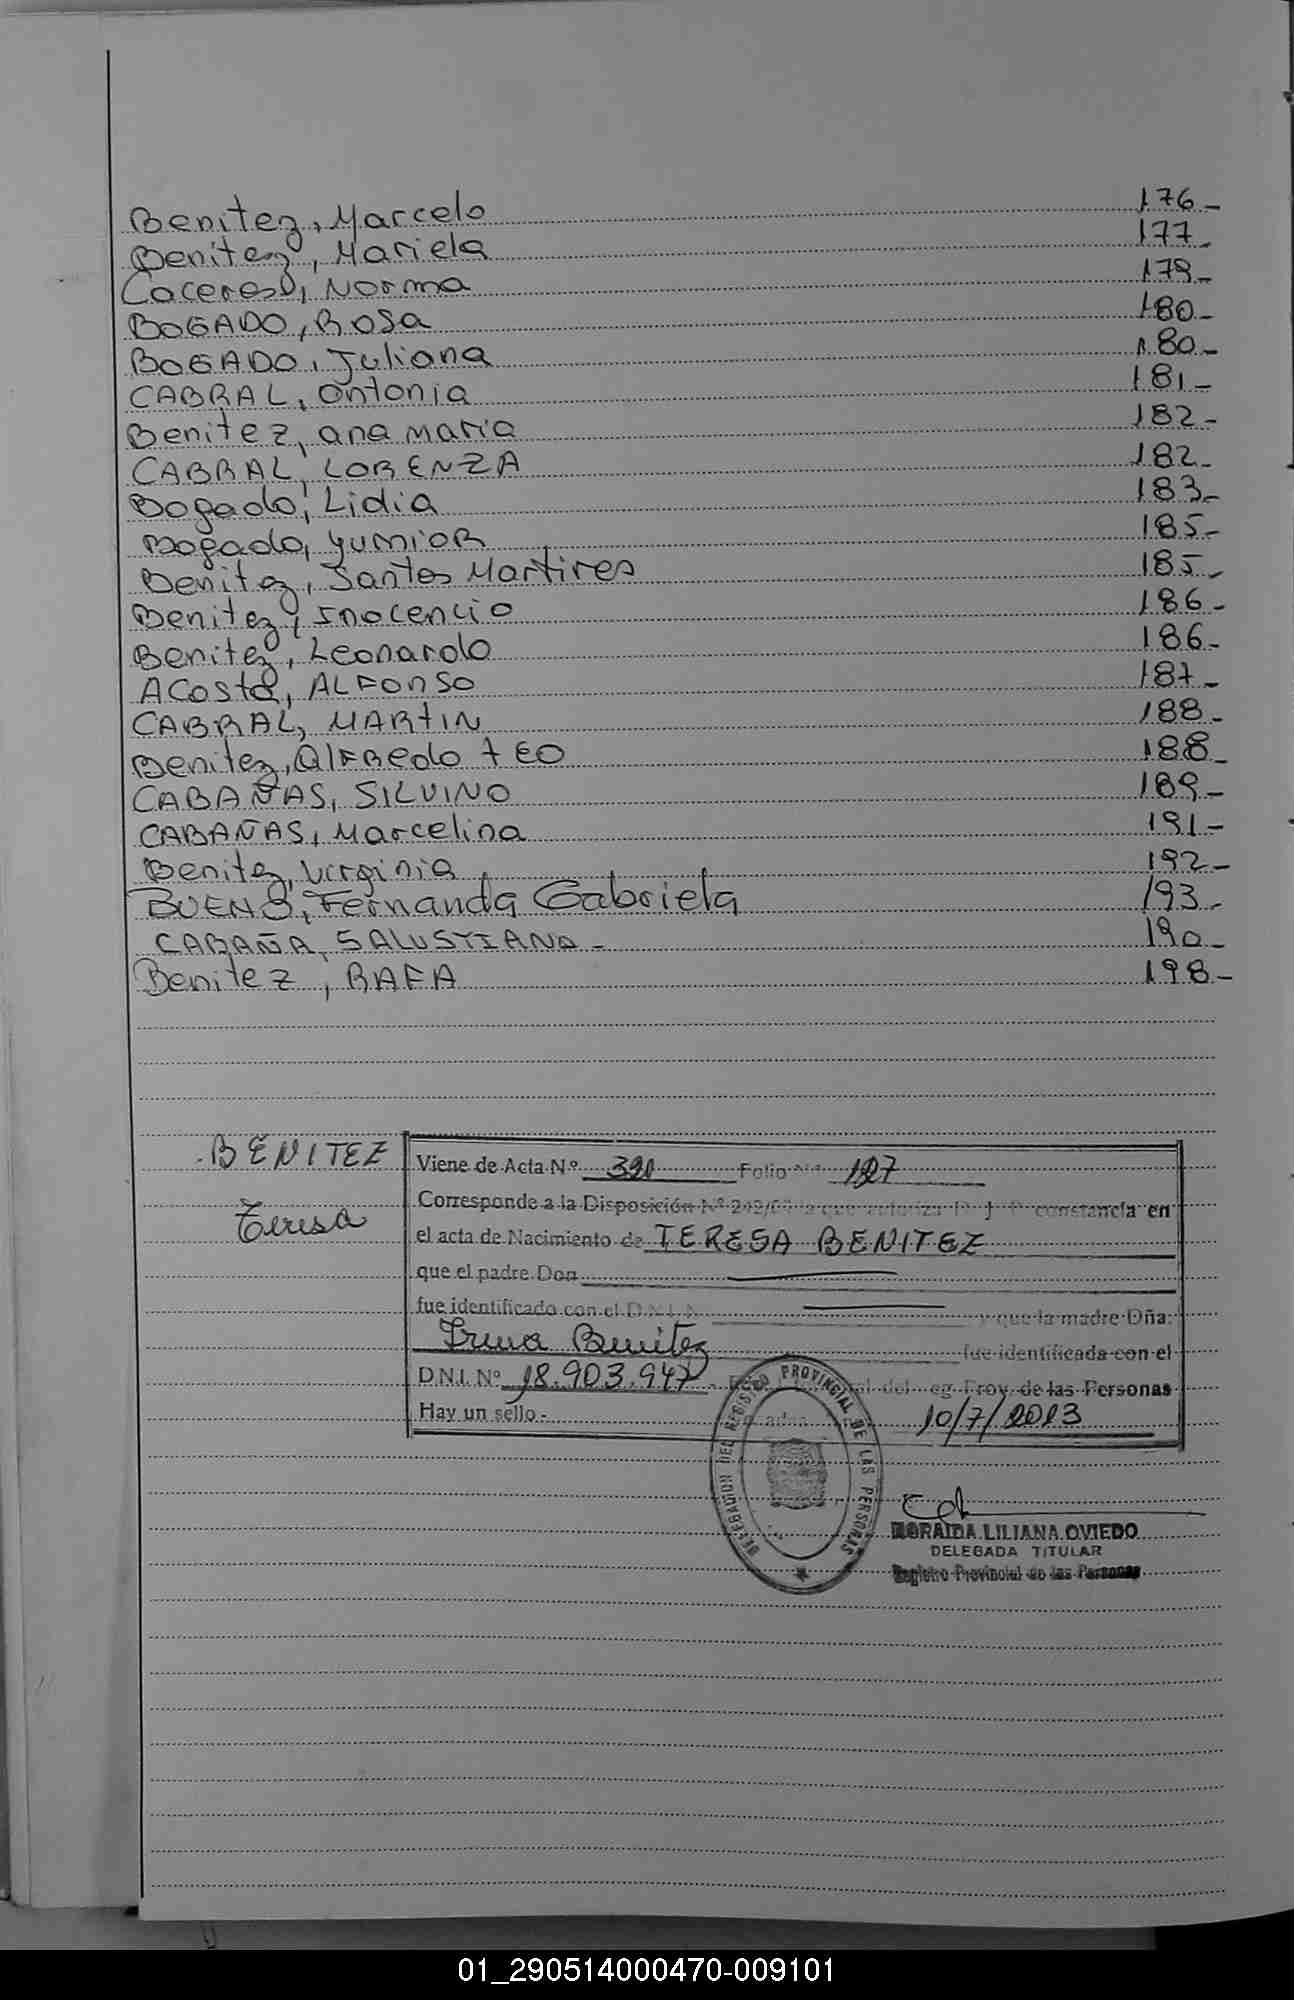 Benitez, Marcelo 176-
Benitez, Mariela 177-
Caceres, Norma 179-
BOGADO, Rosa 180-
BOGADO, Juliana 180-
CABRAL, Antonia 181-
Benitez, ana maria 182-
CABRAL, LORENZA 182-
Bogado, Lidia 183-
Bogado, yunior 185-
Benitez, Santos Martires 185-
Benitez, Inocencio 186-
Benitez, Leonardo 186-
ACosta, ALFonso 187-
CABRAL, MARtIN 188-
Benitez, AlFRedo teo 188-
CABAÑAS, SILVINO 189-
CABAÑAS, Marcelina 191-
Benitez, Virginia 192-
BUENO, Fernanda Gabriela 193-
CABAÑA, SALUSTIANA - 190-
Benitez, RAFA 198-
BENITEZ
Teresa
Viene de Acta Nº 390 Folio Nº 197
Corresponde a la Disposición Nº que autoriza constancia en
el acta de Nacimiento de TERESA BENITEZ
que el padre Don
fue identificado con el D.N.I. y que la madre Dña:
Irma Benitez fue identificada con el
D.N.I. Nº 18.903.947 del Prov. de las Personas
Hay un sello.- 10/7/2013
DELEGACION DEL REGISTRO PROVINCIAL DE LAS PERSONAS
ZORAIDA LILIANA OVIEDO
DELEGADA TITULAR
Registro Provincial de las Personas
01_290514000470-009101